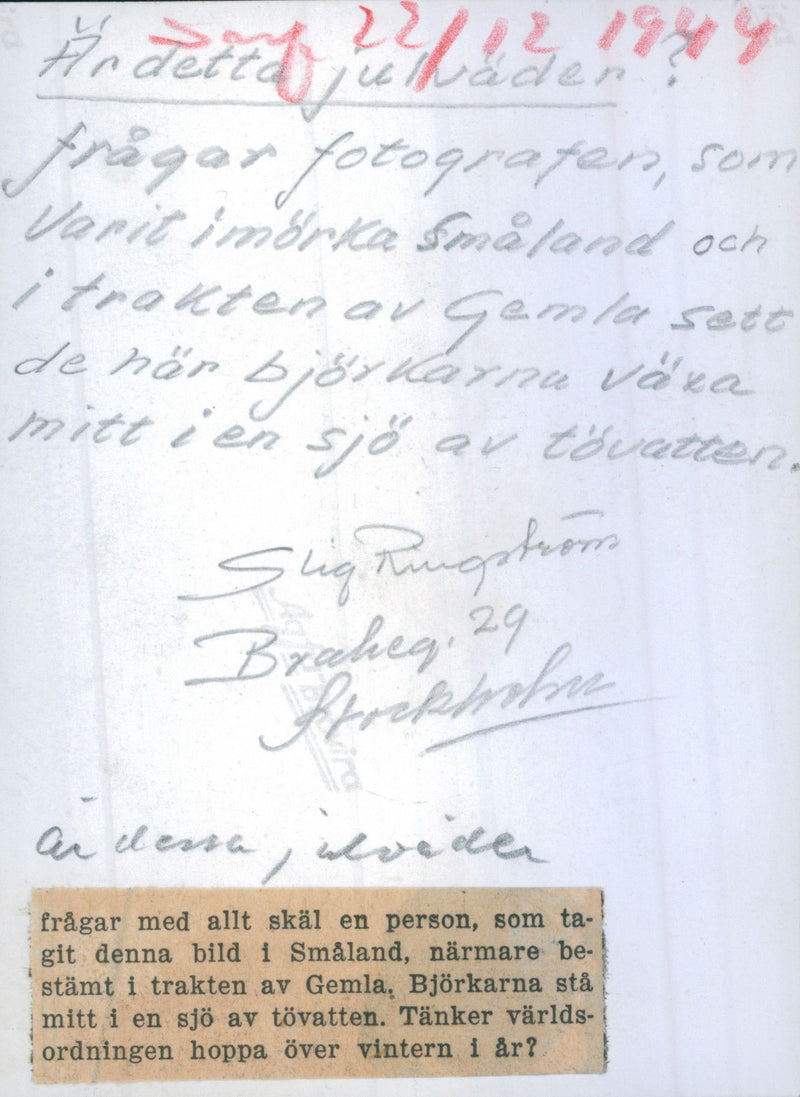 22/12 1944
Är detta julväder?
frågar fotografen, som
varit i mörka Småland och
i trakten av Gemla sett
de här björkarna växa
mitt i en sjö av tövatten.
Stig Ringström
Braheg. 29
Stockholm
Är dessa julväder
frågar med allt skäl en person, som ta-
git denna bild i Småland, närmare be-
stämt i trakten av Gemla. Björkarna stå
mitt i en sjö av tövatten. Tänker världs-
ordningen hoppa över vintern i år?